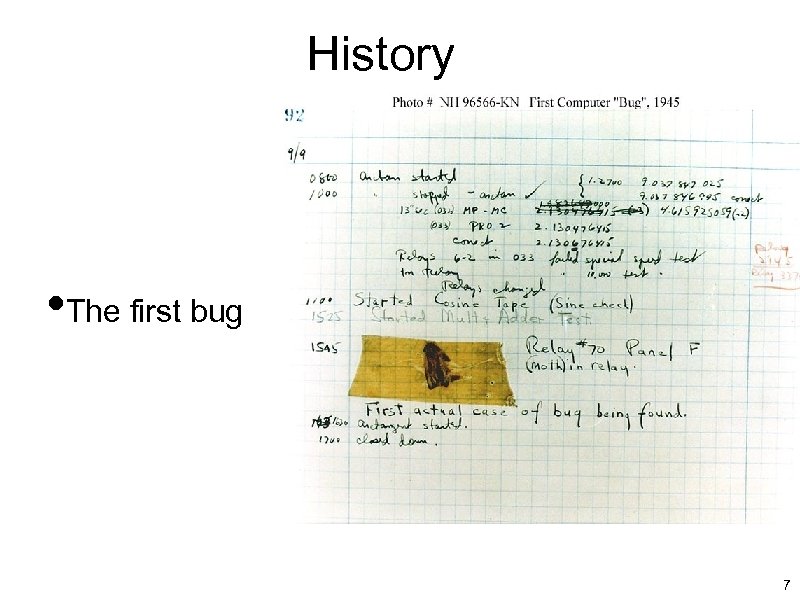 History
Photo # NH 96566-KN First Computer "Bug", 1945
92
9/9
0800 antan started
1000 " stopped - antan ✓ { 1.2700 9.037 847 025
9.037 846 995 correct
13"UC (033) MP - MC 2.130476415 (-3) 4.615925059(-2)
(033) PRO 2 2.130476415
correct 2.130676415
Relays 6-2 in 033 failed special speed test
in relay " 10.000 test.
Relays changed
1100 Started Cosine Tape (Sine check)
1525 Started Mult + Adder Test.
• The first bug
1545 Relay #70 Panel F
(Moth) in relay.
First actual case of bug being found.
antangent started.
1700 closed down.
7